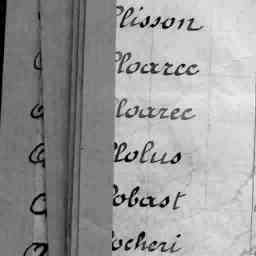 llisson
lloarec
lloarec
llolus
obast
ocheri